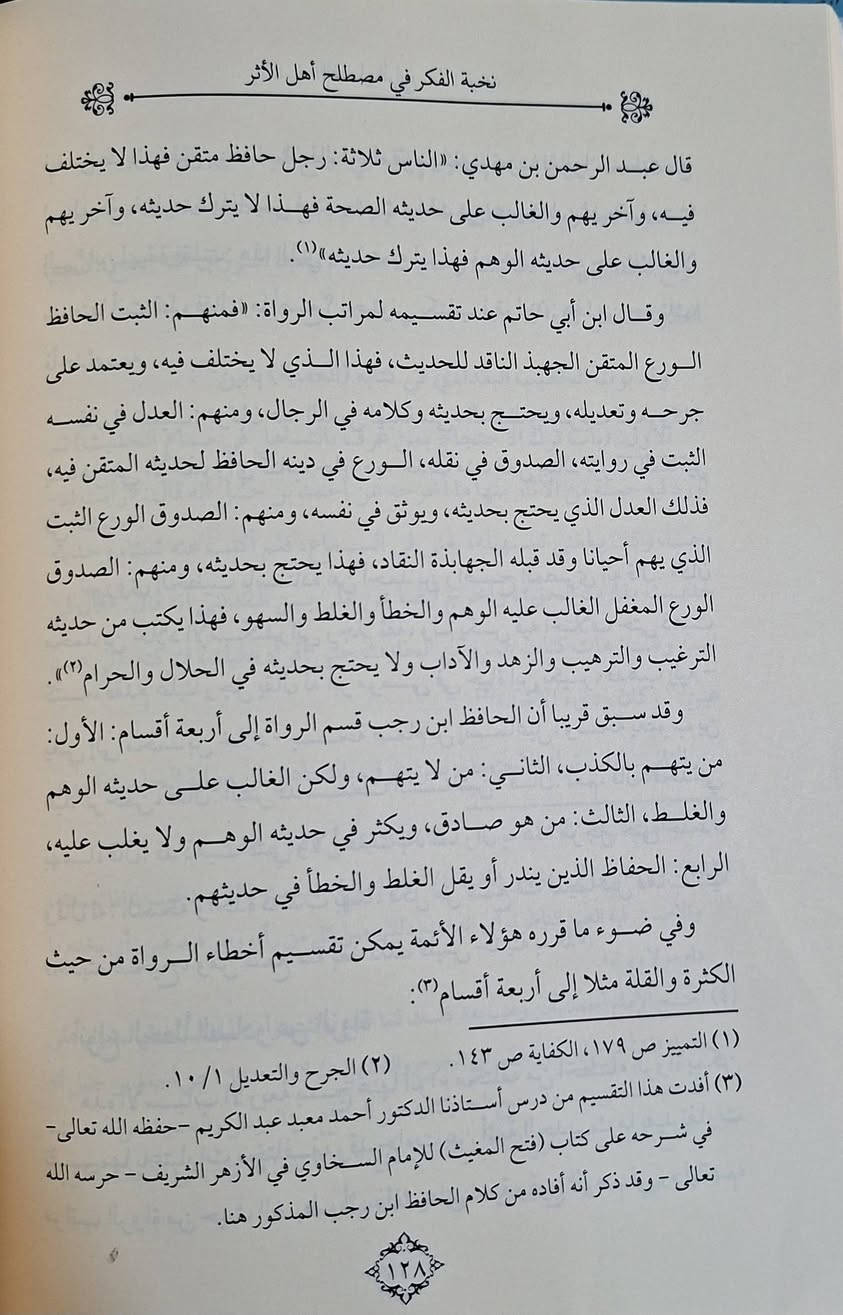 نخبة الفكر في مصطلح أهل الأثر
قال عبد الرحمن بن مهدي: «الناس ثلاثة: رجل حافظ متقن فهذا لا يختلف
فيه، وآخر يهم والغالب على حديثه الصحة فهذا لا يترك حديثه، وآخر يهم
والغالب على حديثه الوهم فهذا يترك حديثه»(١).
وقال ابن أبي حاتم عند تقسيمه لمراتب الرواة: «فمنهم: الثبت الحافظ
الورع المتقن الجهبذ الناقد للحديث، فهذا الذي لا يختلف فيه، ويعتمد على
جرحه وتعديله، ويحتج بحديثه وكلامه في الرجال، ومنهم: العدل في نفسه
الثبت في روايته، الصدوق في نقله، الورع في دينه الحافظ لحديثه المتقن فيه،
فذلك العدل الذي يحتج بحديثه، ويوثق في نفسه، ومنهم: الصدوق الورع الثبت
الذي يهم أحيانا وقد قبله الجهابذة النقاد، فهذا يحتج بحديثه، ومنهم: الصدوق
الورع المغفل الغالب عليه الوهم والخطأ والغلط والسهو، فهذا يكتب من حديثه
الترغيب والترهيب والزهد والآداب ولا يحتج بحديثه في الحلال والحرام(٢)».
وقد سبق قريبا أن الحافظ ابن رجب قسم الرواة إلى أربعة أقسام: الأول:
من يتهم بالكذب، الثاني: من لا يتهم، ولكن الغالب على حديثه الوهم
والغلط، الثالث: من هو صادق، ويكثر في حديثه الوهم ولا يغلب عليه،
الرابع: الحفاظ الذين يندر أو يقل الغلط والخطأ في حديثهم.
وفي ضوء ما قرره هؤلاء الأئمة يمكن تقسيم أخطاء الرواة من حيث
الكثرة والقلة مثلا إلى أربعة أقسام(٣):
(١) التمييز ص ١٧٩، الكفاية ص ١٤٣. (٢) الجرح والتعديل ١٠/١.
(٣) أفدت هذا التقسيم من درس أستاذنا الدكتور أحمد معبد عبد الكريم -حفظه الله تعالى-
في شرحه على كتاب (فتح المغيث) للإمام السخاوي في الأزهر الشريف - حرسه الله
تعالى - وقد ذكر أنه أفاده من كلام الحافظ ابن رجب المذكور هنا.
١٢٨